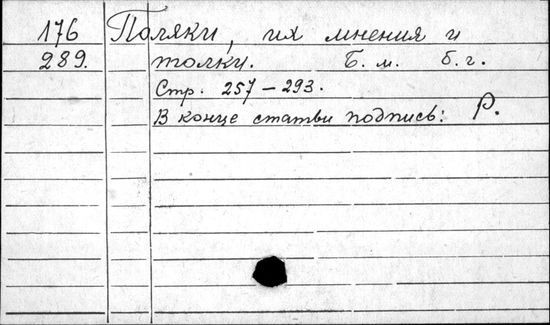 176 Поляки, их мнения и
289. толки. Б. м. б. г.
Стр. 257 – 293.
В конце статьи подпись: Р.